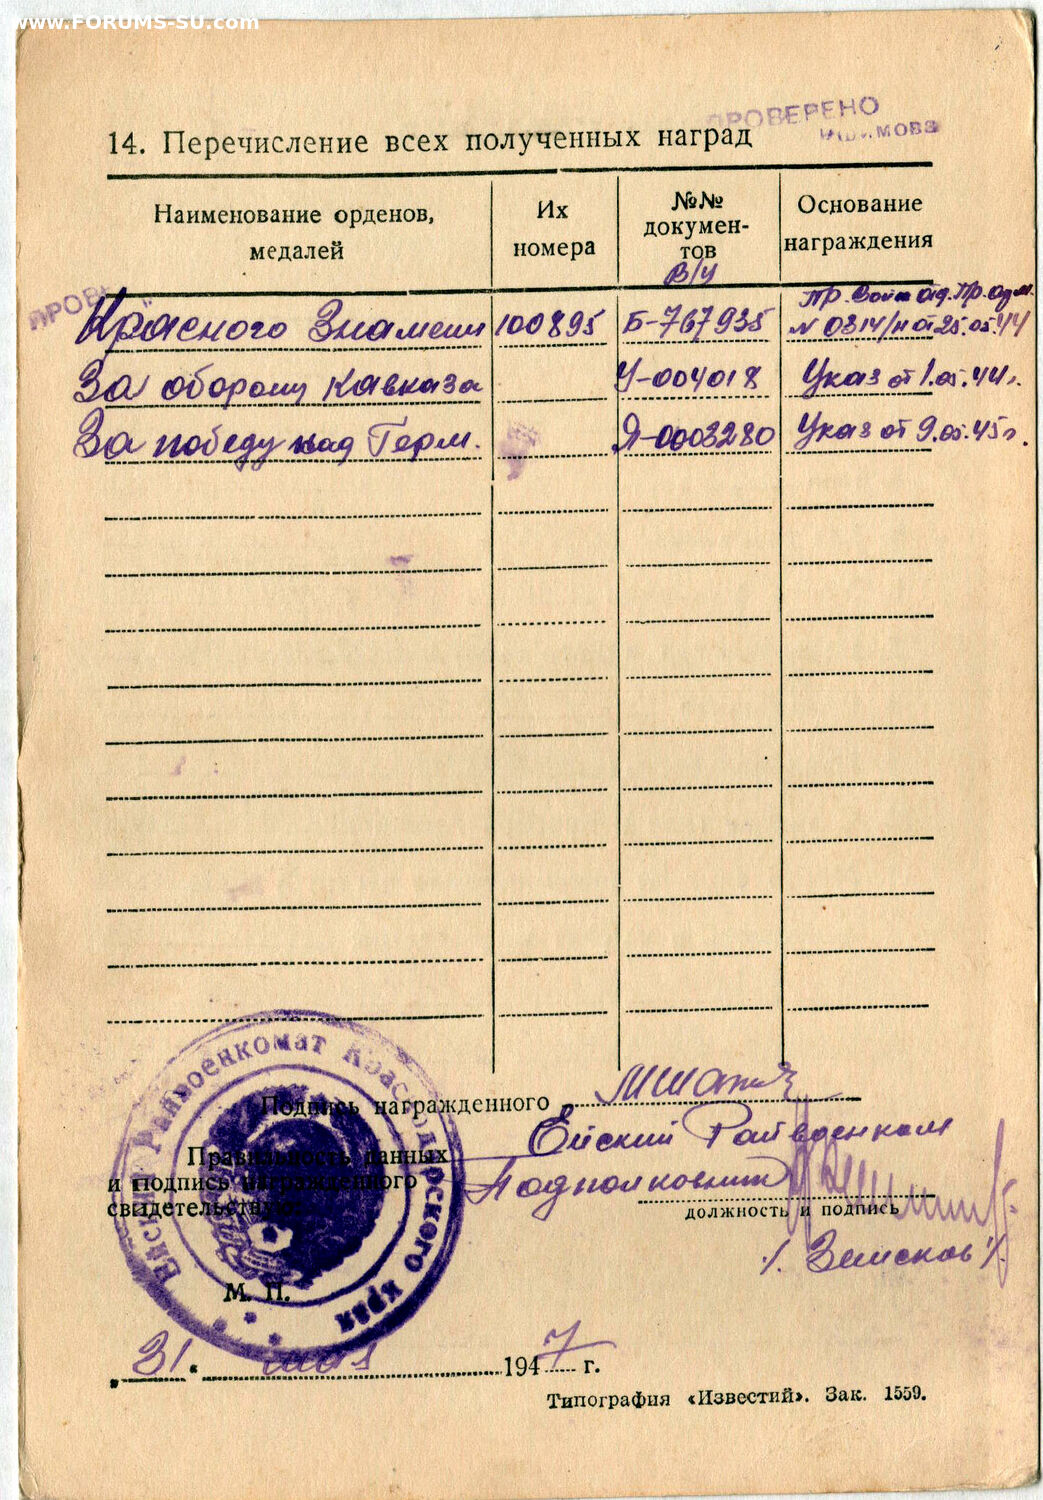 www.FORUMS-SU.com
ПРОВЕРЕНО
14. Перечисление всех полученных наград
Наименование орденов, медалей
Их номера
№№ докумен-
тов
В/У
Основание награждения
ПРОВЕ
Красного Знамени 100895 Б-767935 Пр. Войск Отд. Пр. Арм. № 0314/н от 25.05.44
За оборону Кавказа У-004018 Указ от 1.05.44г.
За победу над Герм. Я-0003280 Указ от 9.05.45г.
Подпись награжденного
Ейский Райвоенком
Правильность данных
и подпись награжденного
свидетельствую:
Подполковник
должность и подпись
/. Земсков /.
Ейский Райвоенкомат Краснодарского края
М. П.
„31“ мая 1947 г.
Типография «Известий». Зак. 1559.